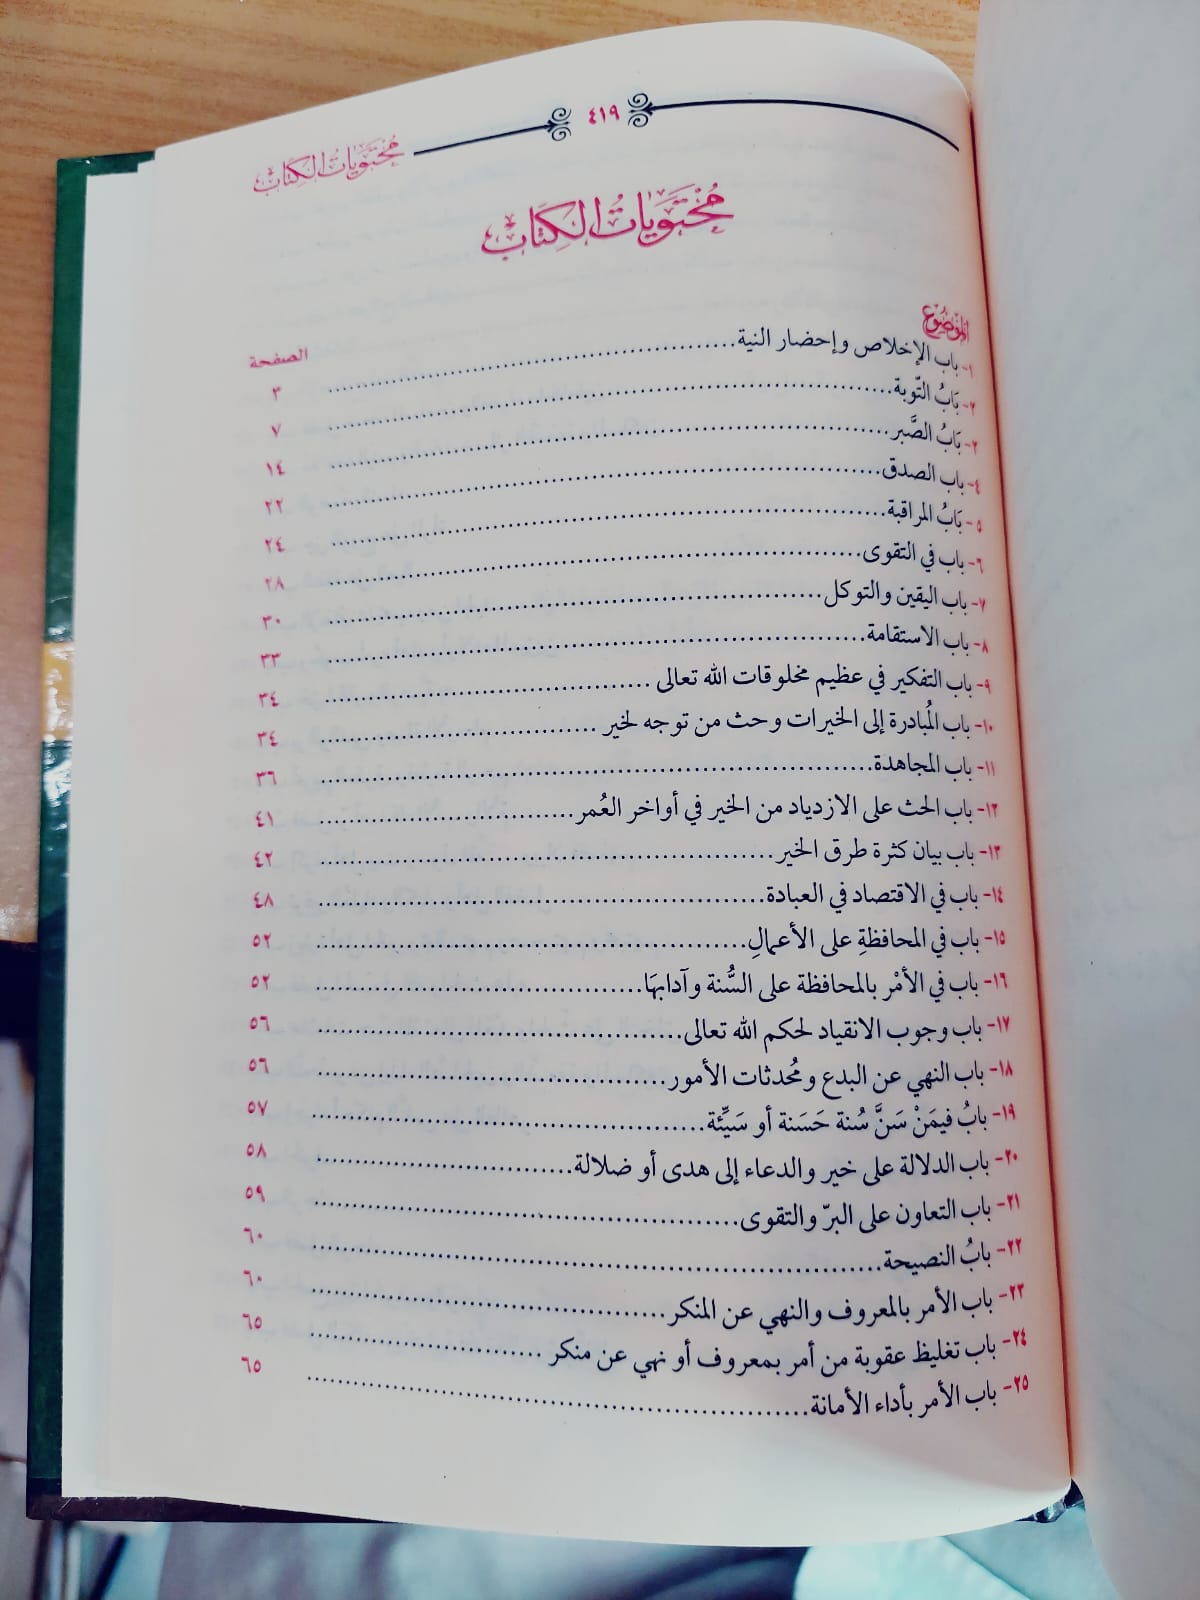 محتويات الكتاب
٤١٩
مُحْتَوَيَاتُ الكِتَابِ
الموضوع الصفحة
١- باب الإخلاص وإحضار النية ٣
٢- بَابُ التّوبة ٧
٣- بَابُ الصَّبر ١٤
٤- باب الصدق ٢٢
٥- بَابُ المراقبة ٢٤
٦- باب في التقوى ٢٨
٧- باب اليقين والتوكل ٣٠
٨- باب الاستقامة ٣٣
٩- باب التفكير في عظيم مخلوقات الله تعالى ٣٤
١٠- باب المُبادرة إلى الخيرات وحث من توجه لخير ٣٤
١١- باب المجاهدة ٣٦
١٢- باب الحث على الازدياد من الخير في أواخر العُمر ٤١
١٣- باب بيان كثرة طرق الخير ٤٢
١٤- باب في الاقتصاد في العبادة ٤٨
١٥- باب في المحافظةِ على الأعمالِ ٥٢
١٦- باب في الأمْر بالمحافظة على السُّنة وآدابهَا ٥٢
١٧- باب وجوب الانقياد لحكم الله تعالى ٥٦
١٨- باب النهي عن البدع ومُحدثات الأمور ٥٦
١٩- بابُ فيمَنْ سَنَّ سُنة حَسَنة أو سَيِّئة ٥٧
٢٠- باب الدلالة على خير والدعاء إلى هدى أو ضلالة ٥٨
٢١- باب التعاون على البرّ والتقوى ٥٩
٢٢- بابُ النصيحة ٦٠
٢٣- باب الأمر بالمعروف والنهي عن المنكر ٦٠
٢٤- باب تغليظ عقوبة من أمر بمعروف أو نهي عن منكر ٦٥
٢٥- باب الأمر بأداء الأمانة ٦٥